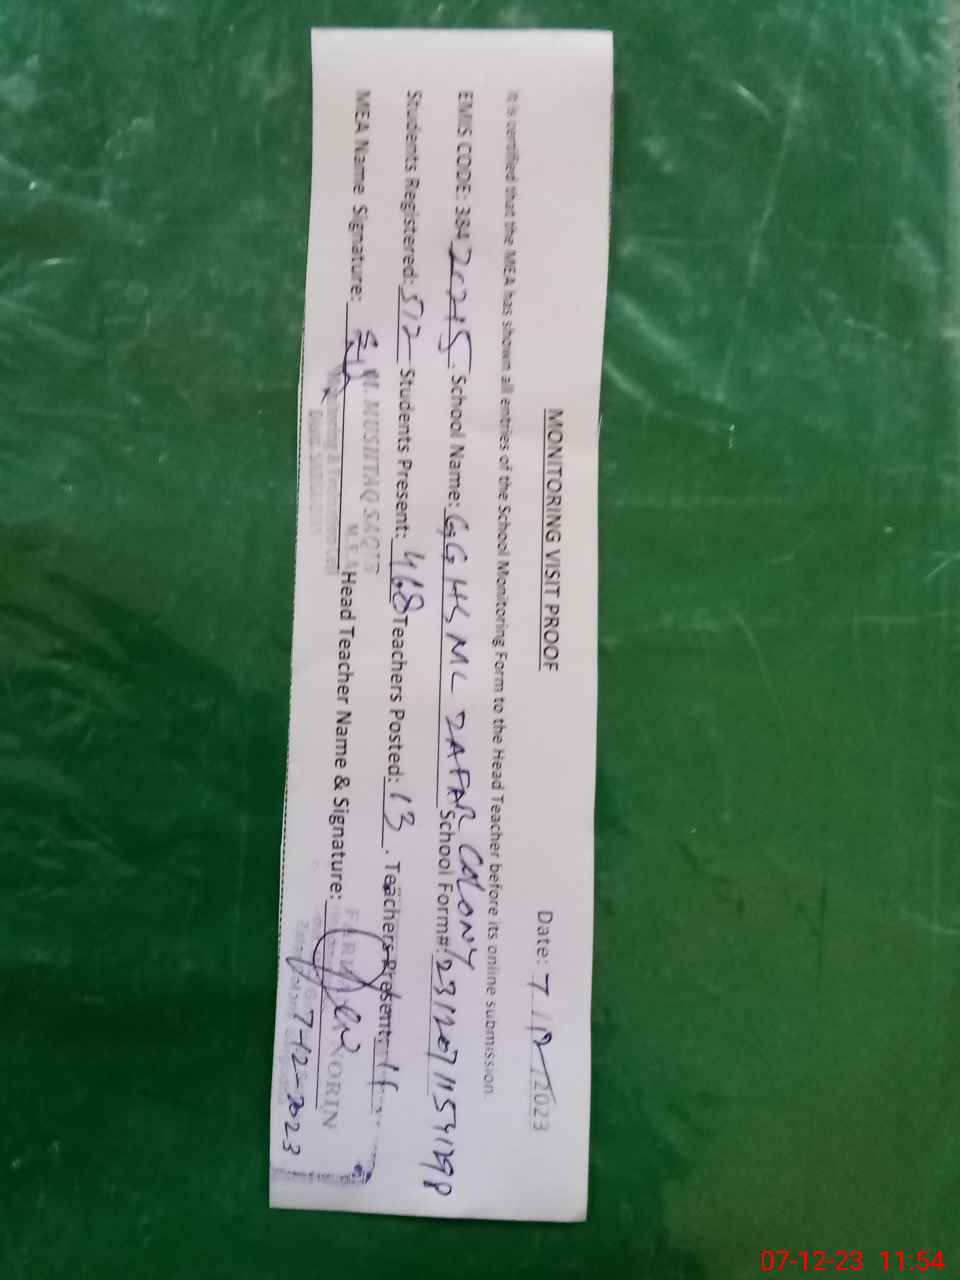 MONITORING VISIT PROOF
Date: 7/12/2023
It is certified that the MEA has shown all entries of the School Monitoring Form to the Head Teacher before its online submission.
EMIS CODE: 384 20215. School Name: GGHS MC ZAFAR COLONY School Form#: 23120711541298
Students Registered: 512 Students Present: 468 Teachers Posted: 13. Teachers Present: 11
MEA Name Signature: Head Teacher Name & Signature:
M. MUSHTAQ SAQIB
M.E.A
Monitoring & Evaluation Cell
Distt.
NORIN
7-12-2023
07-12-23 11:54